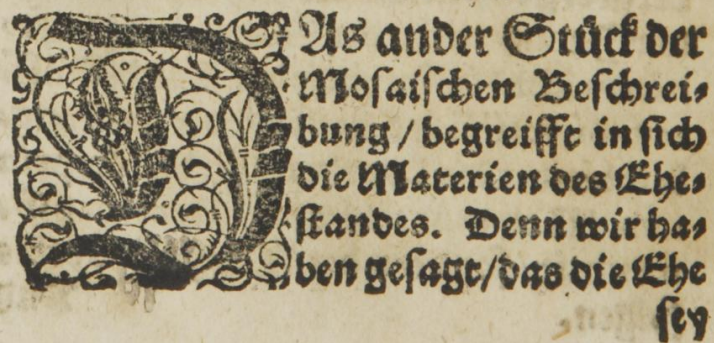 DAs ander Stück der
Mosaischen Beschrei-
bung / begreifft in sich
die Materien des Ehe-
standes. Denn wir ha-
ben gesagt/das die Ehe
sey